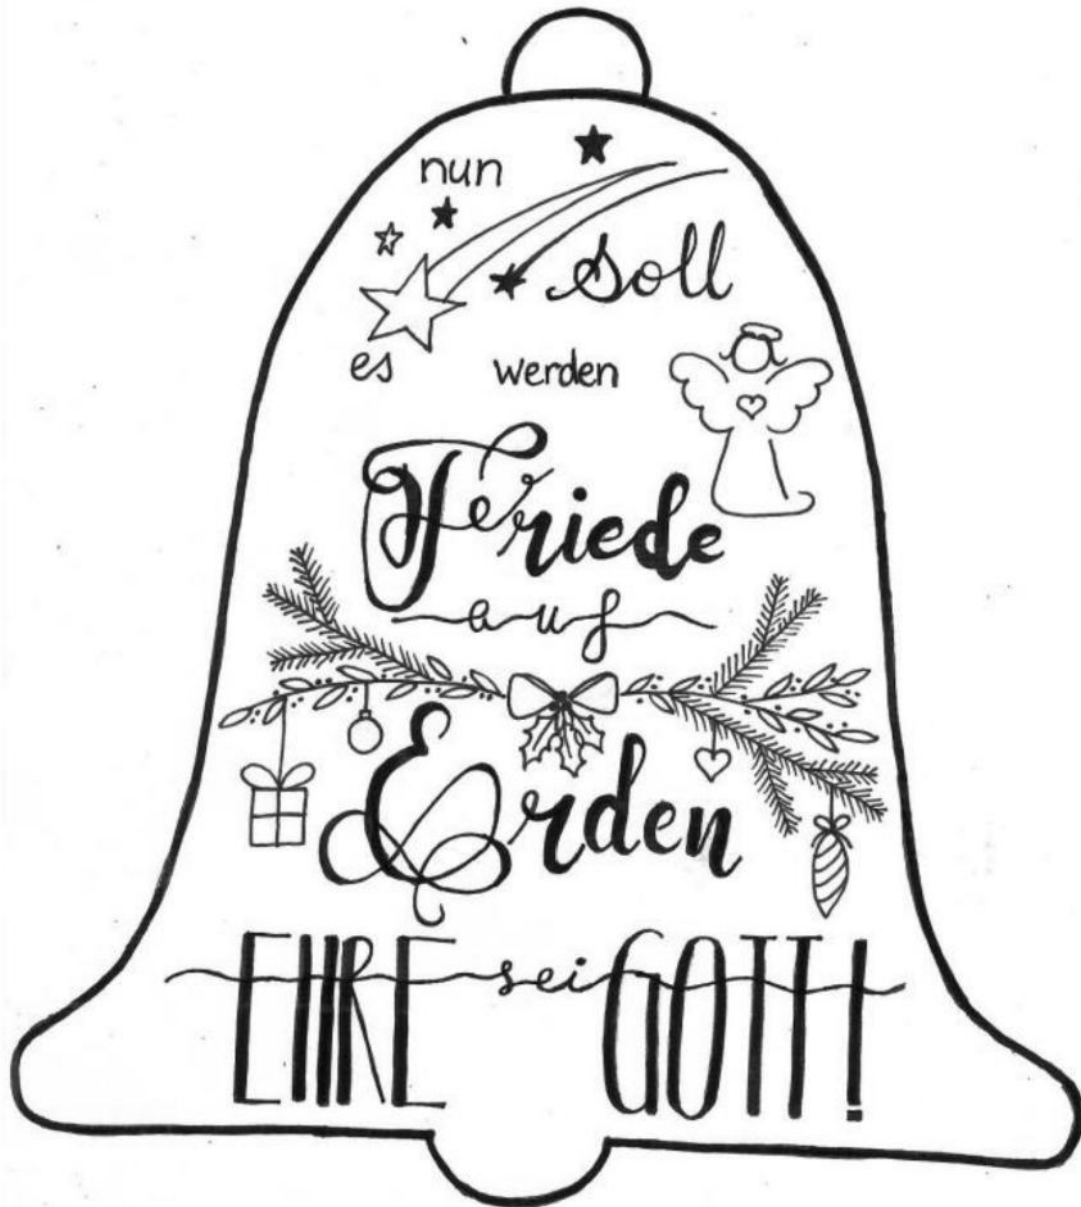 nun
soll
es werden
Friede
auf
Erden
EHRE sei GOTT!